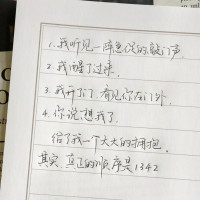 1.我听见一阵急促的敲门声
2.我醒了过来.
3.我开了门.看见你在门外.
4.你说想我了.
给了我一个大大的拥抱.
其实 真正的顺序是1342